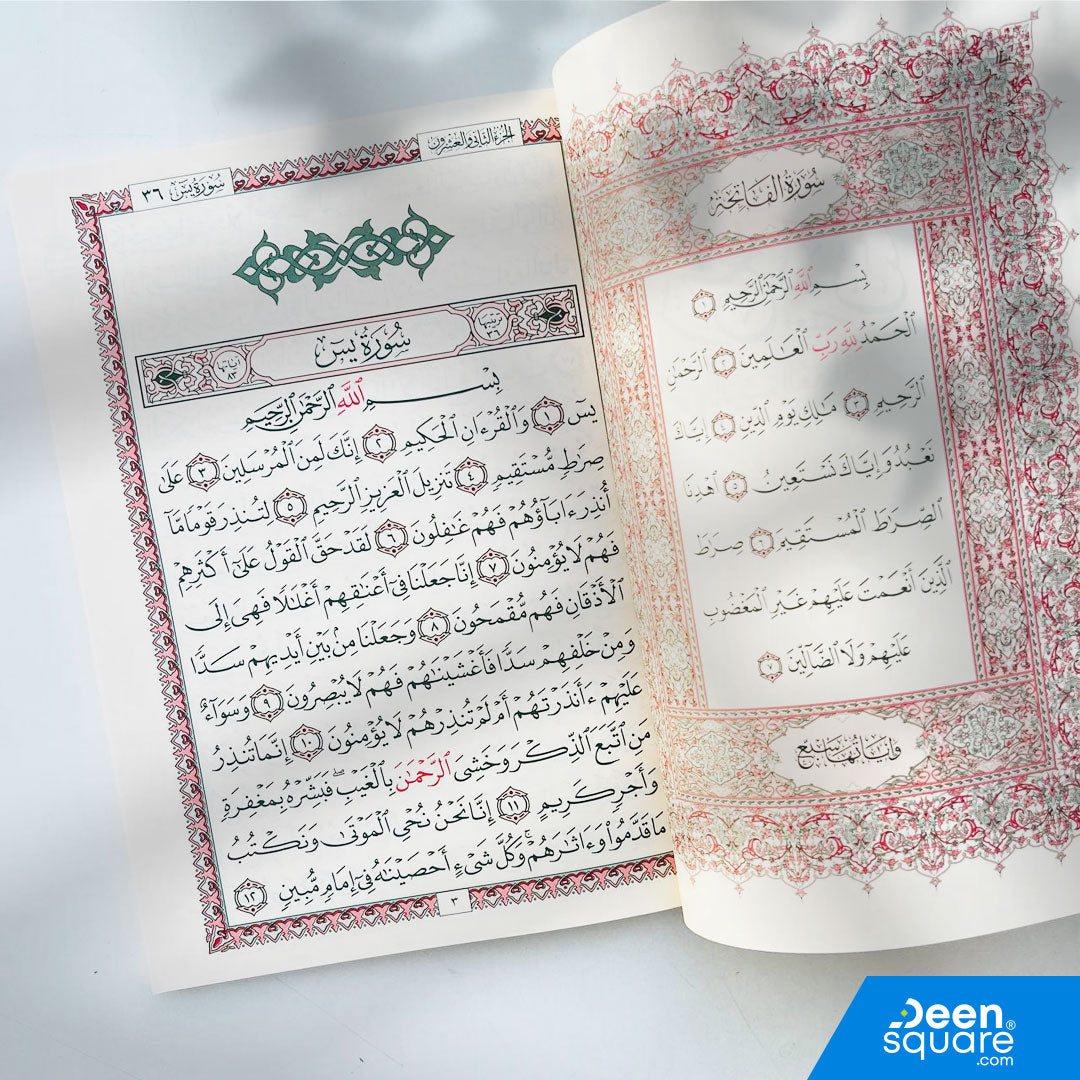 سُورَةُ الفَاتِحَةِ
بِسْمِ ٱللَّهِ ٱلرَّحْمَٰنِ ٱلرَّحِيمِ ١
ٱلْحَمْدُ لِلَّهِ رَبِّ ٱلْعَٰلَمِينَ ٢ ٱلرَّحْمَٰنِ
ٱلرَّحِيمِ ٣ مَٰلِكِ يَوْمِ ٱلدِّينِ ٤ إِيَّاكَ
نَعْبُدُ وَإِيَّاكَ نَسْتَعِينُ ٥ ٱهْدِنَا
ٱلصِّرَٰطَ ٱلْمُسْتَقِيمَ ٦ صِرَٰطَ
ٱلَّذِينَ أَنْعَمْتَ عَلَيْهِمْ غَيْرِ ٱلْمَغْضُوبِ
عَلَيْهِمْ وَلَا ٱلضَّآلِّينَ ٧
وَآيَاتُهَا سَبْعٌ
الجُزْءُ الثَّانِي وَالعِشْرُونَ
سُورَةُ يسٓ ٣٦
ترتيبها ٣٦ سُورَةُ يسٓ آياتها ٨٣
بِسْمِ ٱللَّهِ ٱلرَّحْمَٰنِ ٱلرَّحِيمِ
يسٓ ١ وَٱلْقُرْءَانِ ٱلْحَكِيمِ ٢ إِنَّكَ لَمِنَ ٱلْمُرْسَلِينَ ٣ عَلَىٰ
صِرَٰطٍ مُّسْتَقِيمٍ ٤ تَنزِيلَ ٱلْعَزِيزِ ٱلرَّحِيمِ ٥ لِتُنذِرَ قَوْمًا مَّآ
أُنذِرَ ءَابَآؤُهُمْ فَهُمْ غَٰفِلُونَ ٦ لَقَدْ حَقَّ ٱلْقَوْلُ عَلَىٰٓ أَكْثَرِهِمْ
فَهُمْ لَا يُؤْمِنُونَ ٧ إِنَّا جَعَلْنَا فِىٓ أَعْنَٰقِهِمْ أَغْلَٰلًا فَهِىَ إِلَى
ٱلْأَذْقَانِ فَهُم مُّقْمَحُونَ ٨ وَجَعَلْنَا مِنۢ بَيْنِ أَيْدِيهِمْ سَدًّا
وَمِنْ خَلْفِهِمْ سَدًّا فَأَغْشَيْنَٰهُمْ فَهُمْ لَا يُبْصِرُونَ ٩ وَسَوَآءٌ
عَلَيْهِمْ ءَأَنذَرْتَهُمْ أَمْ لَمْ تُنذِرْهُمْ لَا يُؤْمِنُونَ ١٠ إِنَّمَا تُنذِرُ
مَنِ ٱتَّبَعَ ٱلذِّكْرَ وَخَشِىَ ٱلرَّحْمَٰنَ بِٱلْغَيْبِ ۖ فَبَشِّرْهُ بِمَغْفِرَةٍ
وَأَجْرٍ كَرِيمٍ ١١ إِنَّا نَحْنُ نُحْىِ ٱلْمَوْتَىٰ وَنَكْتُبُ
مَا قَدَّمُوا۟ وَءَاثَٰرَهُمْ ۚ وَكُلَّ شَىْءٍ أَحْصَيْنَٰهُ فِىٓ إِمَامٍ مُّبِينٍ ١٢
٣
Deen
square®
.com